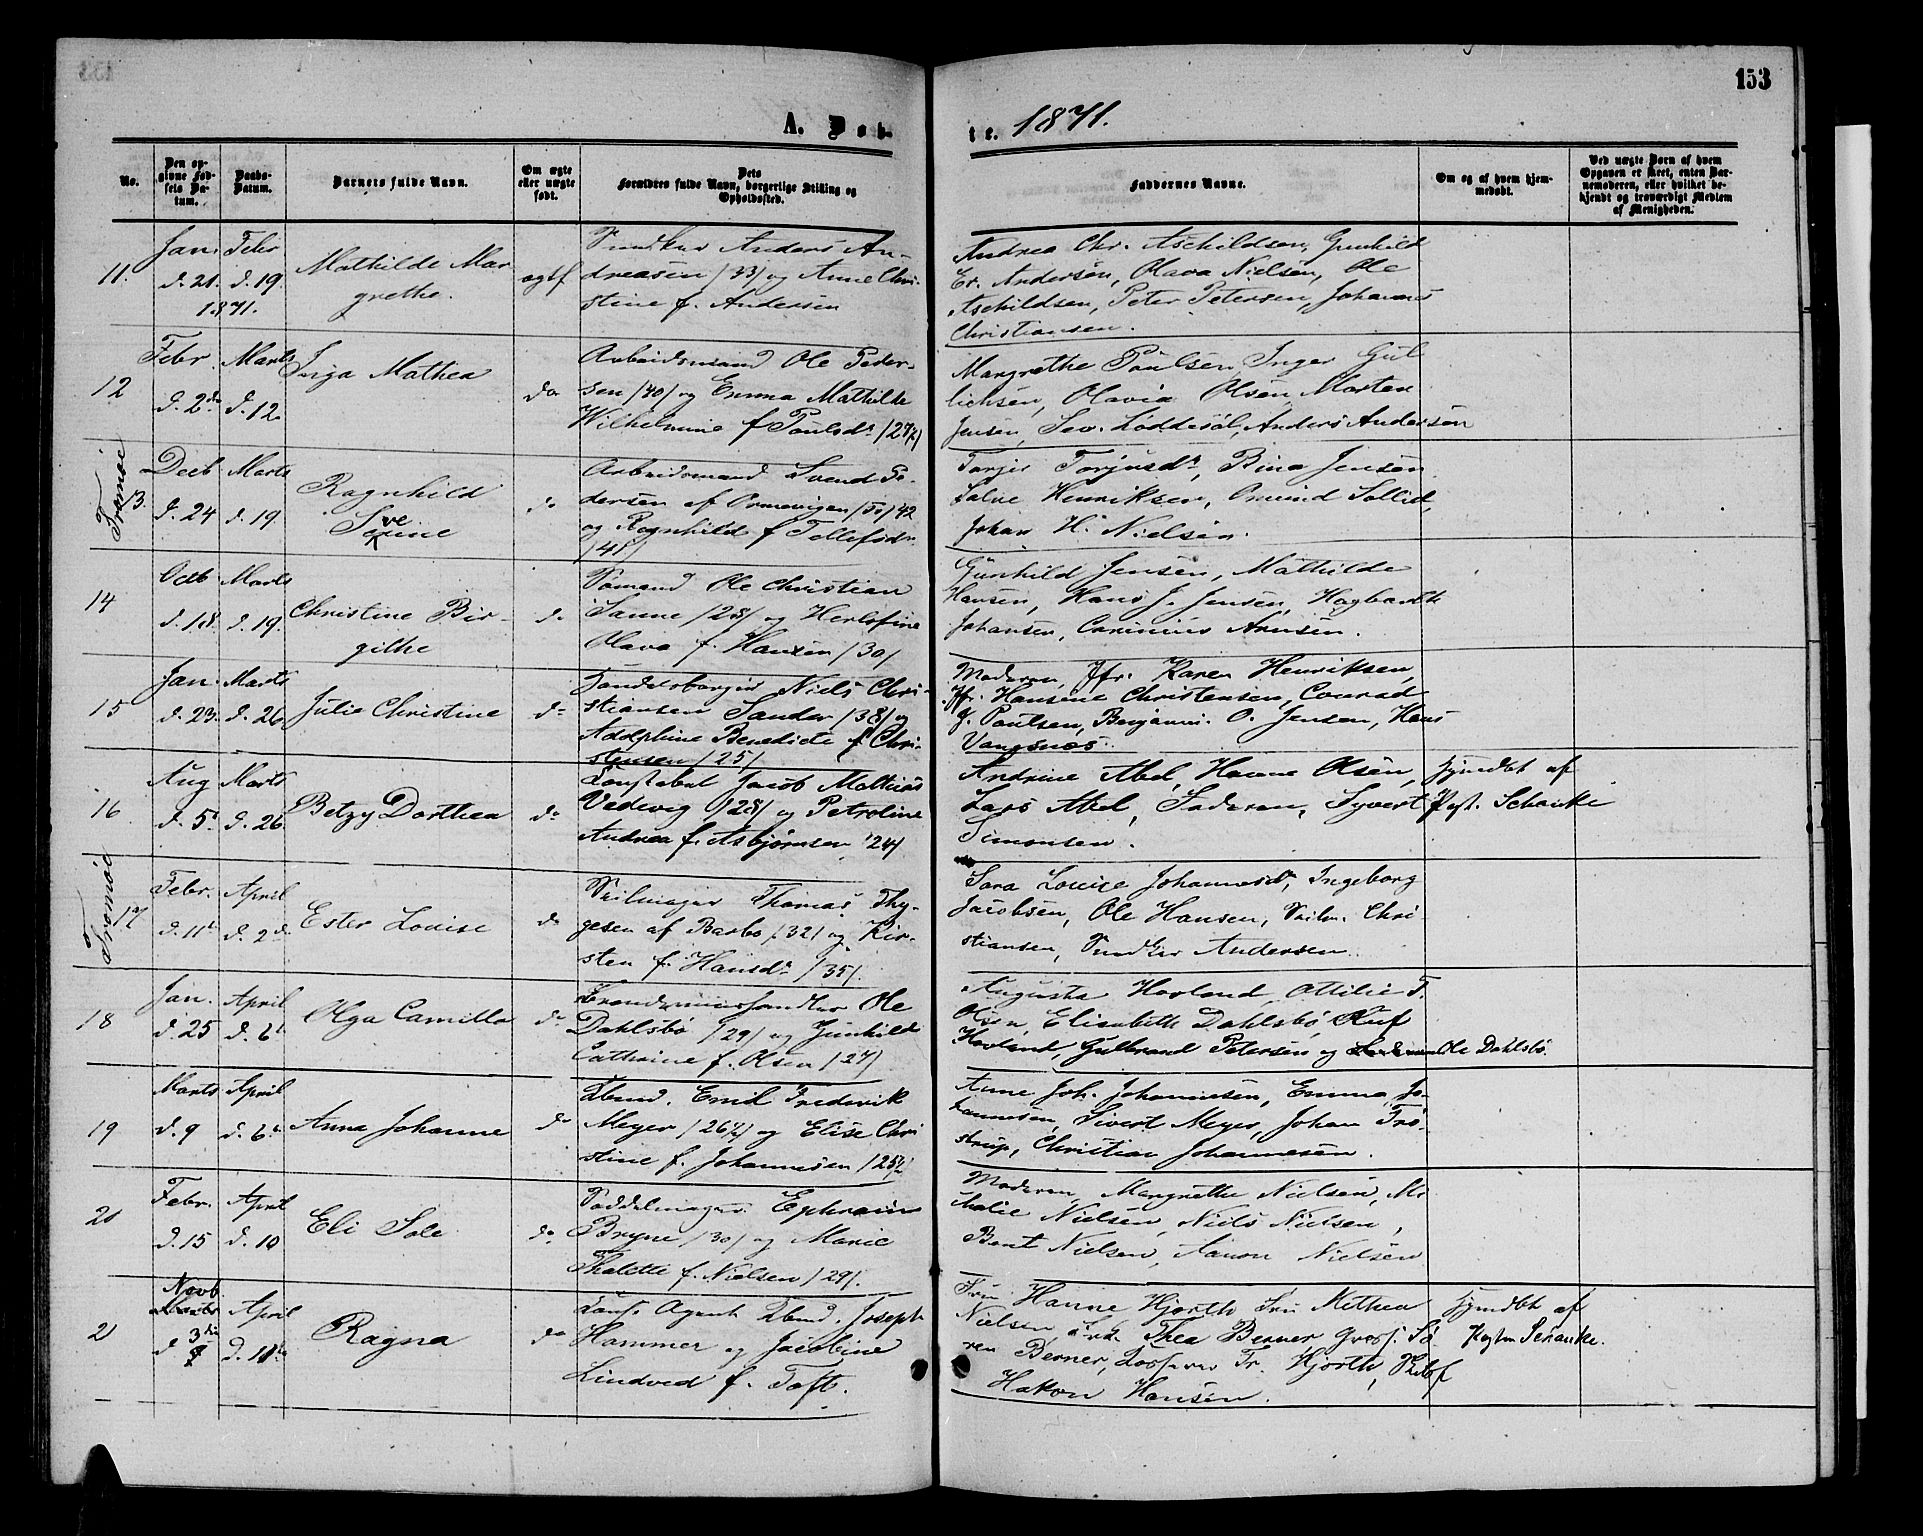 153
A. Døb-
te. 1871.
No.
Den op-
givne Fød-
sels Da-
tum.
Daabs-
Datum.
Barnets fulde Navn.
Om ægte
eller uægte
født.
Dets
Forældres fulde Navn, borgerlige Stilling og
Opholdssted.
Faddernes Navne.
Om og af hvem hjem-
medøbt.
Ved uægte Børn af hvem
Opgaven er skeet, enten Bar-
nemoderen, eller hvilket be-
kjendt og troværdigt Medlem
af Menigheden.
11.
Jan. d. 21.
1871.
Febr d. 19.
Mathilde Mar
grethe.
ægtf
Anders An-
dreasen /33/ og Anne Chri-
stine f. Andersen
Andrea Chr. Aschildsen, Gunhild
Er. Andersen, Olava Nielsen, Ole
Aschildsen, Peter Petersen, Johannes
Christiansen.
12
Febr. d. 2den
Marts d. 12.
Inga Mathea
do
Arbeidsmand Ole Peder-
sen /40/ og Emma Mathilde
Wilhelmine f Poulsdr /27½/
Margrethe Poulsen, Inger Gul
liksen, Olavia Olsen, Morten
Jensen, Sev. Løddesøl, Anders Andersen
Tromøe
13.
Decb d. 24
Marts d. 19.
Ragnhild
Severine
do
Arbeidsmand Svend Pe-
dersen af Ormevigen /50/ 42
og Ragnhild f Tellefsdr
/41/
Torjer Torjusdr, Bina Jensen
Salve Henriksen, Omund Sollid,
Johan H. Nielsen.
14
Octb d. 18.
Marts d. 19.
Christine Bir-
githe
do
Sømand Ole Christian
Sanne /28/ og Herlofine
Olava f. Hansen /30/
Gunhild Jensen, Mathilde
Hansen, Hans J. Jensen, Hagbarth
Johansen, Carinius Arnesen.
15
Jan. d. 23.
Marts d. 26
Julie Christine
do
Handelsborger Niels Chri-
stiansen Sander /38/ og
Adolphine Benedicte f Chri-
stensen /25/
Moderen, Jfr. Karen Henriksen,
Jfr. Hansine Christensen, Conrad
J. Poulsen, Benjamin O. Jensen, Hans
Vangsnes.
16
Aug d. 5t
Marts d. 26
Betzy Dorthea
do
Constabel Jacob Mathias
Vedevig /28/ og Petroline
Andrea f. Asbjørnsen /24/
Andrine Abel, Hanne Olsen,
Lars Abel, Faderen, Syvert
Simonsen.
Hjmdbt af
Past. Schanke
Tromøe
17
Febr. d. 11t
April d. 2d.
Ester Louise
do
Seilmager Thomas Thy-
gesen af Barbo /32/ og Kir-
sten f. Hansdr /35/.
Sara Louise Johannesdr, Ingeborg
Jacobsen, Ole Hansen, Seilm. Chri-
stiansen, Andersen.
18
Jan. d. 25
April d. 6t
Olga Camilla
do
Ole
Dahlsbø /29/ og Gunhild
Cathrine f. Olsen /27/
Augusta Hovland, Ottilie T.
Olsen, Elisabeth Dahlsbø, Oluf
Hovland, Gulbrand Petersen og Ole Dahlsbø.
19
Marts d. 9
April d. 6t
Anna Johanne
do
Kbmd. Emil Frederik
Meyer /26½/ og Elise Chri
stine f. Johannesen /25½/
Anne Joh. Johannesen, Emma Jo-
hannesen, Sivert Meyer, Johan Trö-
strup, Christian Johannesen.
20
Febr. d. 15
April d. 10
Eli Sole
do
Saddelmager Ephraim
Bryne /30/ og Marie
Thalette f. Nielsen /29/.
Moderen, Margrethe Nielsen, Ma
thalie Nielsen, Niels Nielsen,
Bent Nielsen, Aanon Nielsen
21
Novb. d 3die
April d. 10de
Ragna
do
Agent Kbmd. Joseph
Hammer og Jacobine
Lindved f. Toft.
Fru Hanne Hjorth, Fru Methea
Nielsen, Frk. Thea Berner, Gross. Sö
ren Berner, Fr. Hjorth,
Hakon Hansen.
Hjmdbt af
Pastor Schanke.